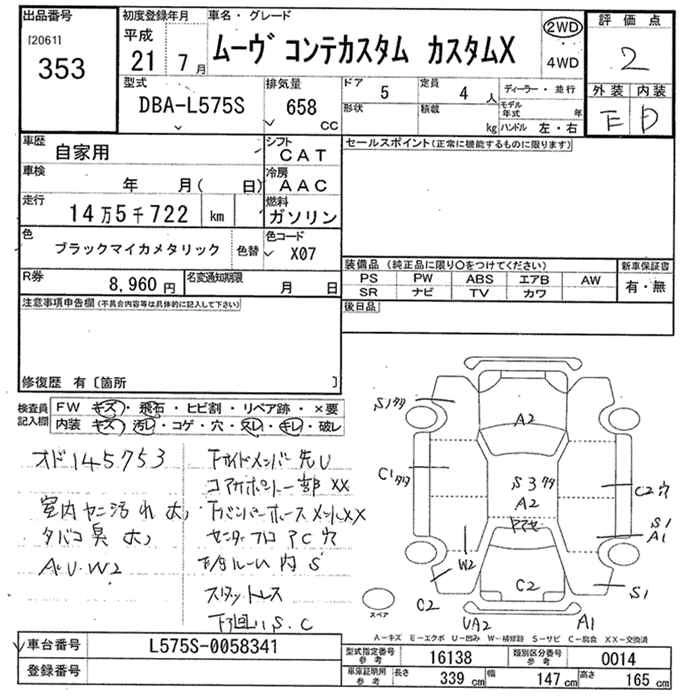 出品番号
[2061]
353
初度登録年月
平成
21 年 7 月
車名・グレード
ムーヴ コンテカスタム カスタムX
2WD
4WD
評価点
2
外装 内装
E D
型式
DBA-L575S
排気量
658 cc
ドア 5
定員 4 人
形状
積載 kg
ディーラー・並行
モデル年式 年
ハンドル 左・右
車歴
自家用
シフト
CAT
車検
年 月( 日)
冷房
AAC
走行
14万5千722 km
燃料
ガソリン
色
ブラックマイカメタリック
色替
色コード
X07
R券
8,960 円
名変通知期限
月 日
セールスポイント(正常に機能するものに限ります)
装備品 (純正品に限り○をつけてください)
新車保証書
PS PW ABS エアB AW
SR ナビ TV カワ
有・無
後日品
注意事項申告欄(不具合内容等は具体的に記入して下さい)
修復歴 有〔箇所 〕
検査員
記入欄
FW キズ・飛石・ヒビ割・リペア跡・×要
内装 キズ・汚レ・コゲ・穴・スレ・キレ・破レ
オド145753
室内ヤニ汚れ大
タバコ臭大
AU.W2
下サイドメンバー先U
コアサポート一部XX
センターフロアC穴
スタットレス
下廻りS.C
S1
A2
C1
S3
A2
C2穴
S1
A1
W2
C2
C2
S1
UA2
A1
スペア
A-キズ E-エクボ U-凹み W-補修跡 S-サビ C-腐食 XX-交換済
車台番号
L575S-0058341
登録番号
型式指定番号
参考
16138
類別区分番号
参考
0014
車庫証明用
参考
長さ 339 cm 幅 147 cm 高さ 165 cm